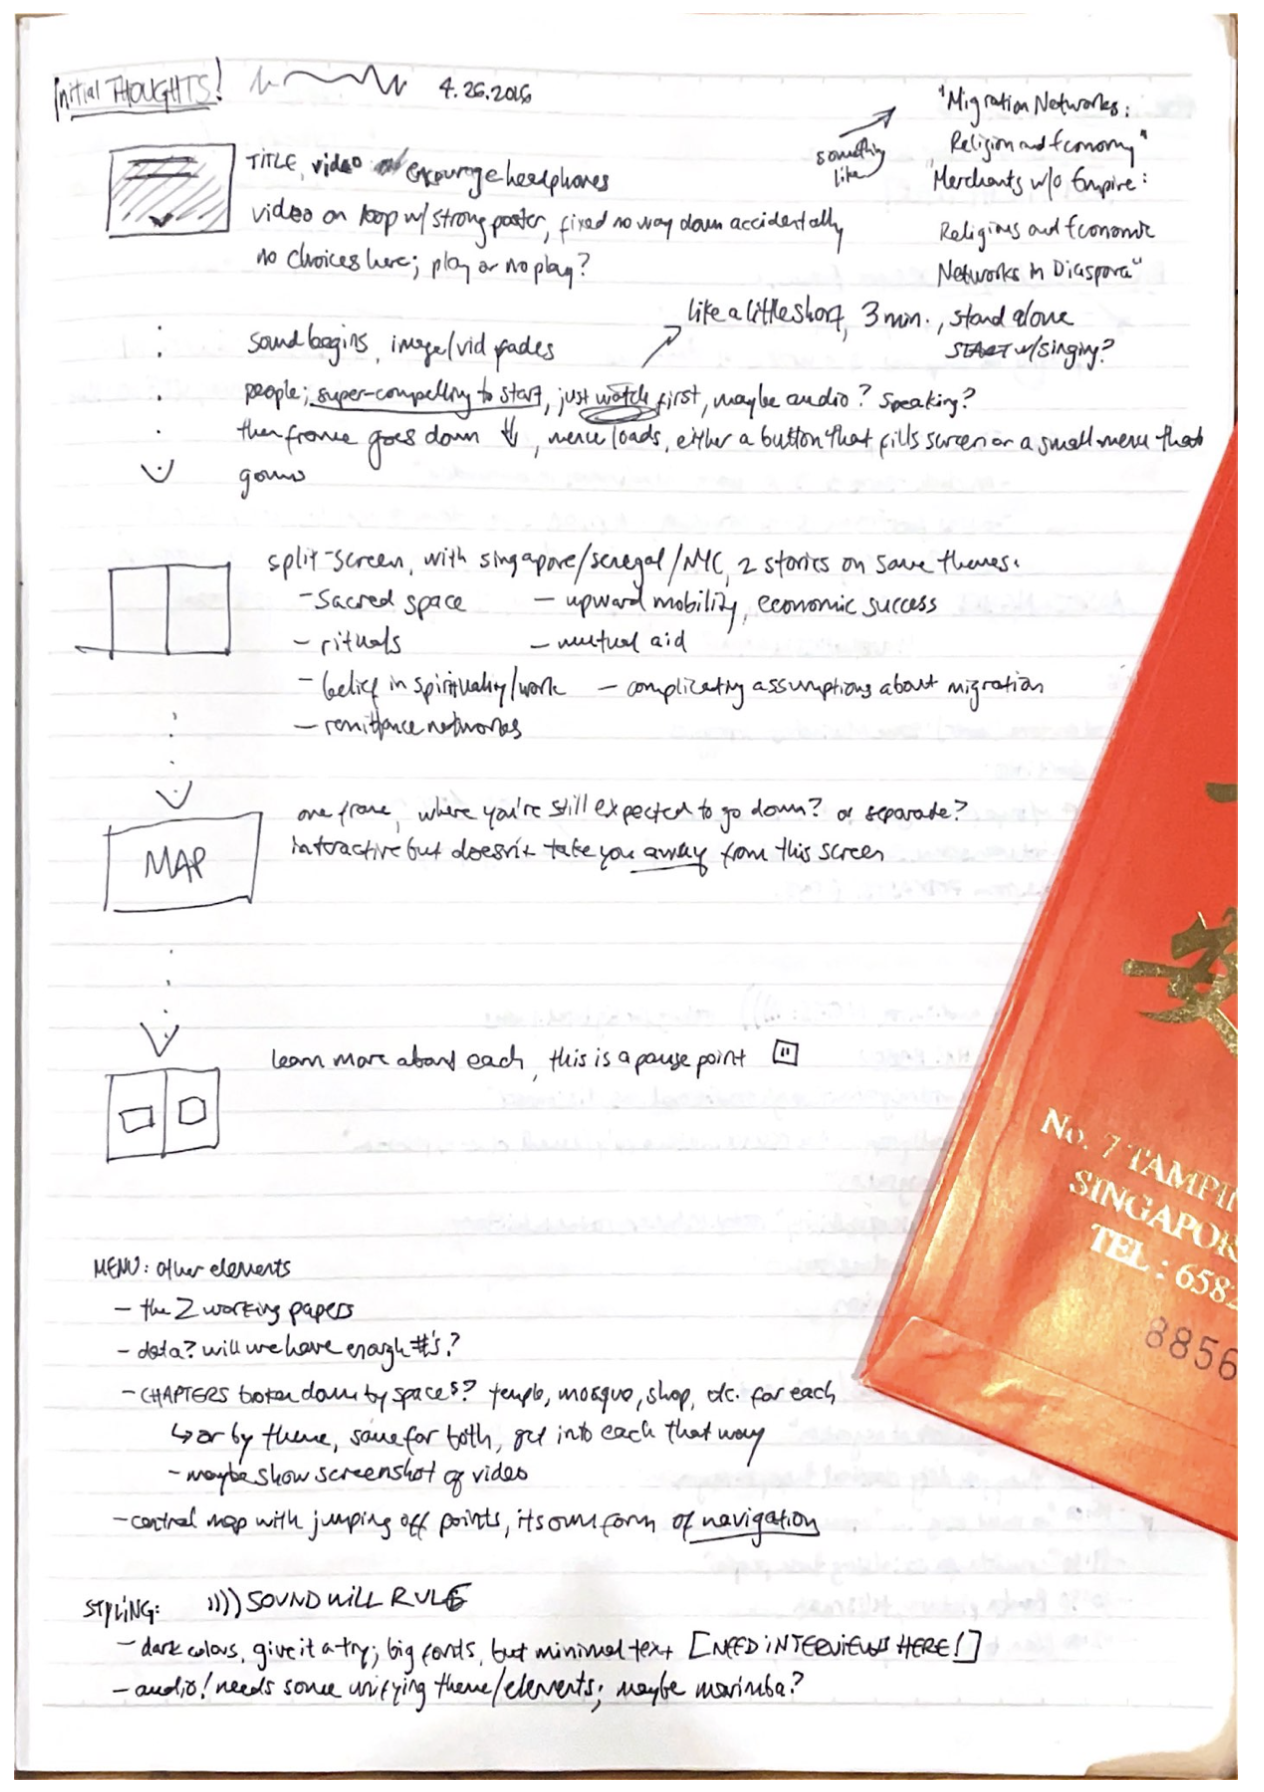 Initial THOUGHTS! 4.26.2016
TITLE, video encourage headphones
video on loop w/ strong poster, fixed no way down accidentally
no choices here; play or no play?
something
like
"Migration Networks:
Religion and Economy"
"Merchants w/o Empire:
Religious and Economic
Networks in Diaspora"
like a little short, 3 min., stand alone
START w/ singing?
sound begins, image/vid fades
people; super-compelling to start, just watch first, maybe audio? speaking?
then frame goes down ↓, menu loads, either a button that fills screen or a small menu that
grows
split-screen, with singapore/senegal/NYC, 2 stories on same themes:
- sacred space — upward mobility, economic success
- rituals — mutual aid
- belief in spirituality/work — complicating assumptions about migration
- remittance networks
MAP
one frame, where you're still expected to go down? or separate?
interactive but doesn't take you away from this screen
learn more about each, this is a pause point
MENU: other elements
- the 2 working papers
- data? will we have enough #'s?
- CHAPTERS broken down by spaces? temple, mosque, shop, etc. for each
↳ or by theme, same for both, get into each that way
- maybe show screenshot of video
- central map with jumping off points, its own form of navigation
STYLING: )))) SOUND WILL RULE
- dark colors, give it a try; big fonts, but minimal text [NEED INTERVIEWS HERE!]
- audio! needs some unifying theme/elements; maybe marimba?
No. 7 TAMPI
SINGAPOR
TEL : 658
8856